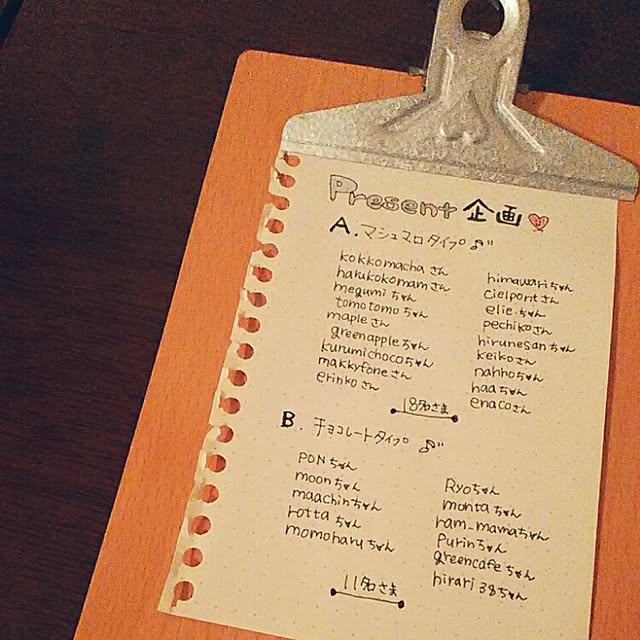 Present 企画
A. マシュマロタイプ
kokkomachaさん
harukokomamさん
megumiちゃん
tomotomoちゃん
mapleさん
greenappleちゃん
kurumichocoちゃん
makkyfoneさん
erinkoさん
himawariちゃん
cielpontさん
elie.ちゃん
pechikoさん
hirunesanちゃん
keikoさん
nahhoちゃん
haaちゃん
enacoさん
18名さま
B. チョコレートタイプ
PONちゃん
moonちゃん
maachinちゃん
rottaちゃん
momoharuちゃん
Ryoちゃん
montaちゃん
ram_mamaちゃん
purinちゃん
greencafeちゃん
hirari38ちゃん
11名さま